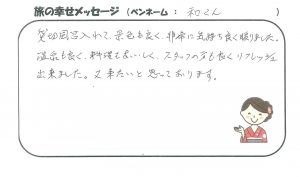 旅の幸せメッセージ（ペンネーム： 和くん ）
貸切風呂入れて、景色も良く、非常に気持ち良く眠りました。
温泉も良く、料理もおいしく、スタッフの方も良くリフレッシュ
出来ました。又来たいと思っております。